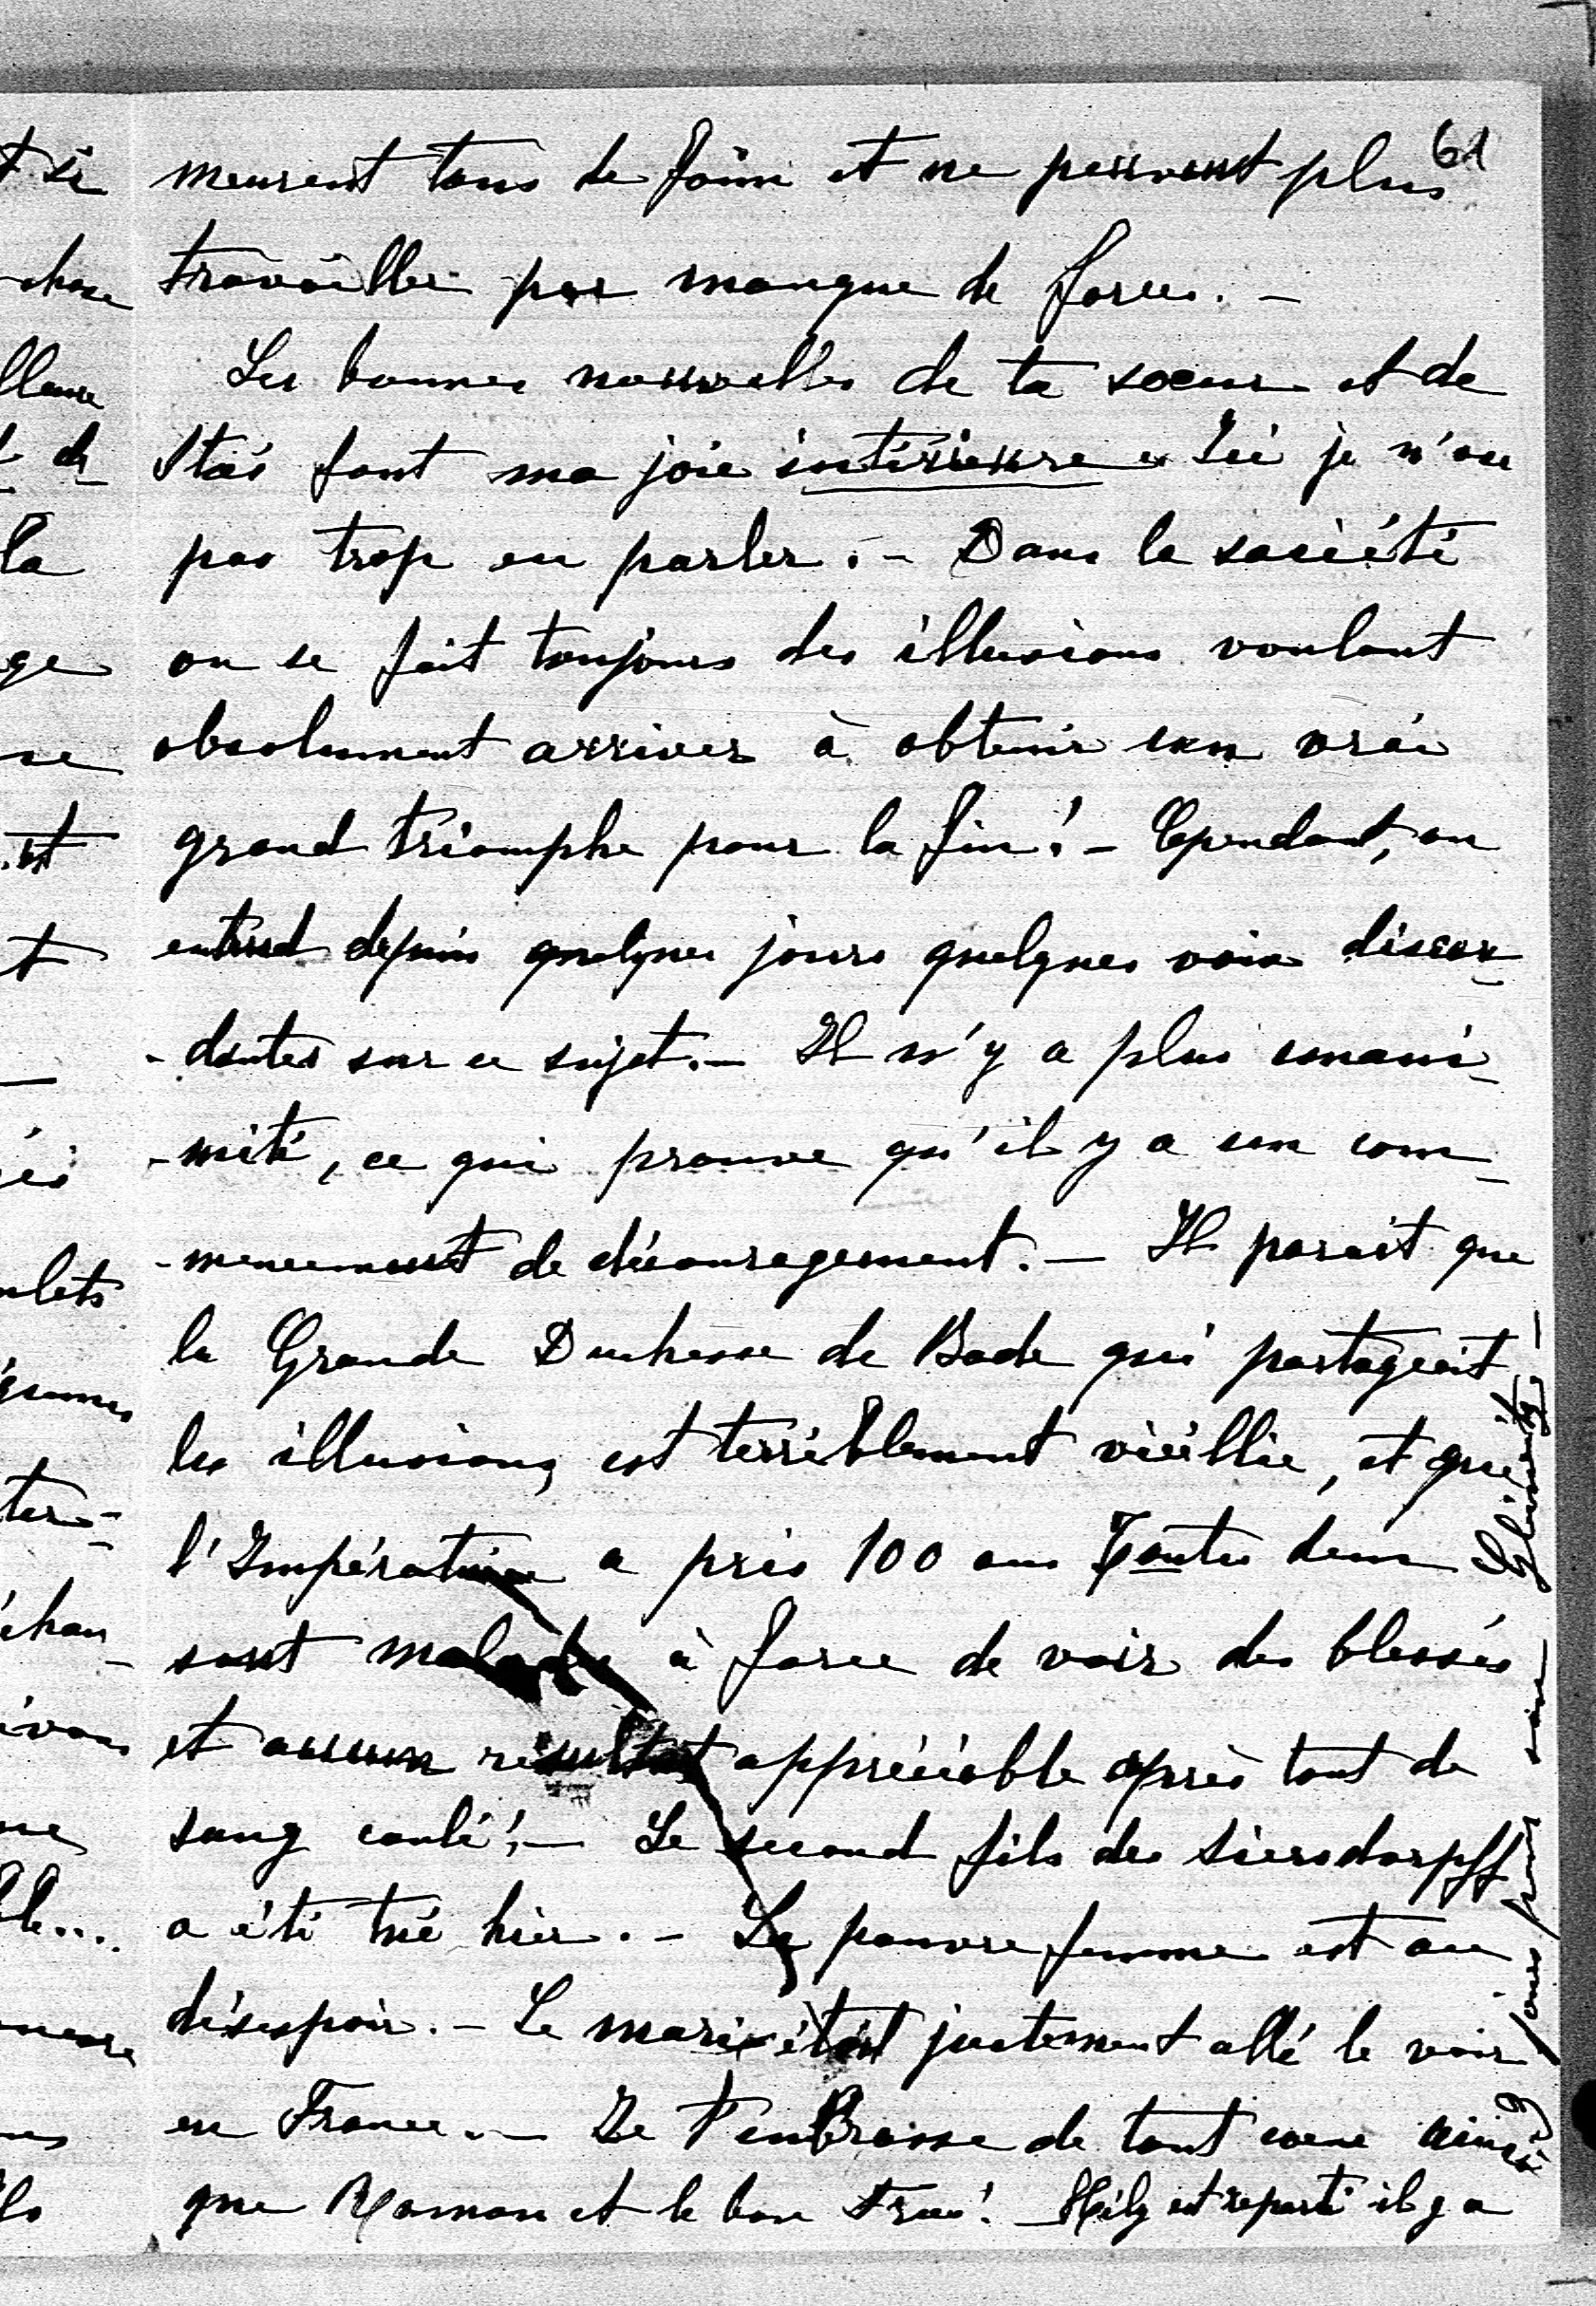 61
meurent tous de faim et ne peuvent plus
travailler par manque de forces. -
Les bonnes nouvelles de ta soeur et de
Stas font ma joie intérieure. Ici je n'ose
pas trop en parler. - Dans la société
on se fait toujours des illusions voulant
absolument arriver à obtenir un vrai
grand triomphe pour la fin! - Cependant, on
entend depuis quelques jours quelques voix discor-
-dantes sur ce sujet. - Il n'y a plus unani-
-mité, ce qui prouve qu'il y a un com-
-mencement de découragement. - Il parait que
la Grande Duchesse de Bade qui partageait
les illusions, est terriblement vieillie, et que
l'Impératrice a pris 100 ans Toutes deux
sont malades à force de voir des blessés
et aucun résultat appréciable après tout de
sang coulé! - Le second fils des Siersdorpff
a été tué hier. - La pauvre femme est au
désespoir. - Le mari était justement allé le voir
en France. - Je t'embrasse de tout coeur ainsi
que Maman et le bon - est reparti il y a
jours pour